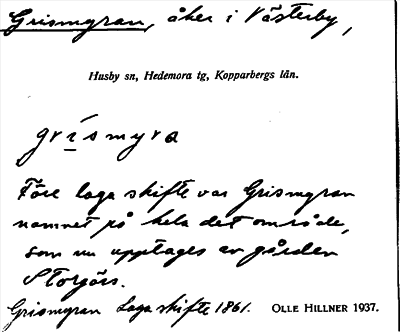 Grismyran, åker i Västerby,
Husby sn, Hedemora tg, Kopparbergs län.
grismyra
Före laga skifte var Grismyran
namnet på hela det område,
som nu upptages av gården
Storgårs.
Grismyran Laga skifte 1861. OLLE HILLNER 1937.